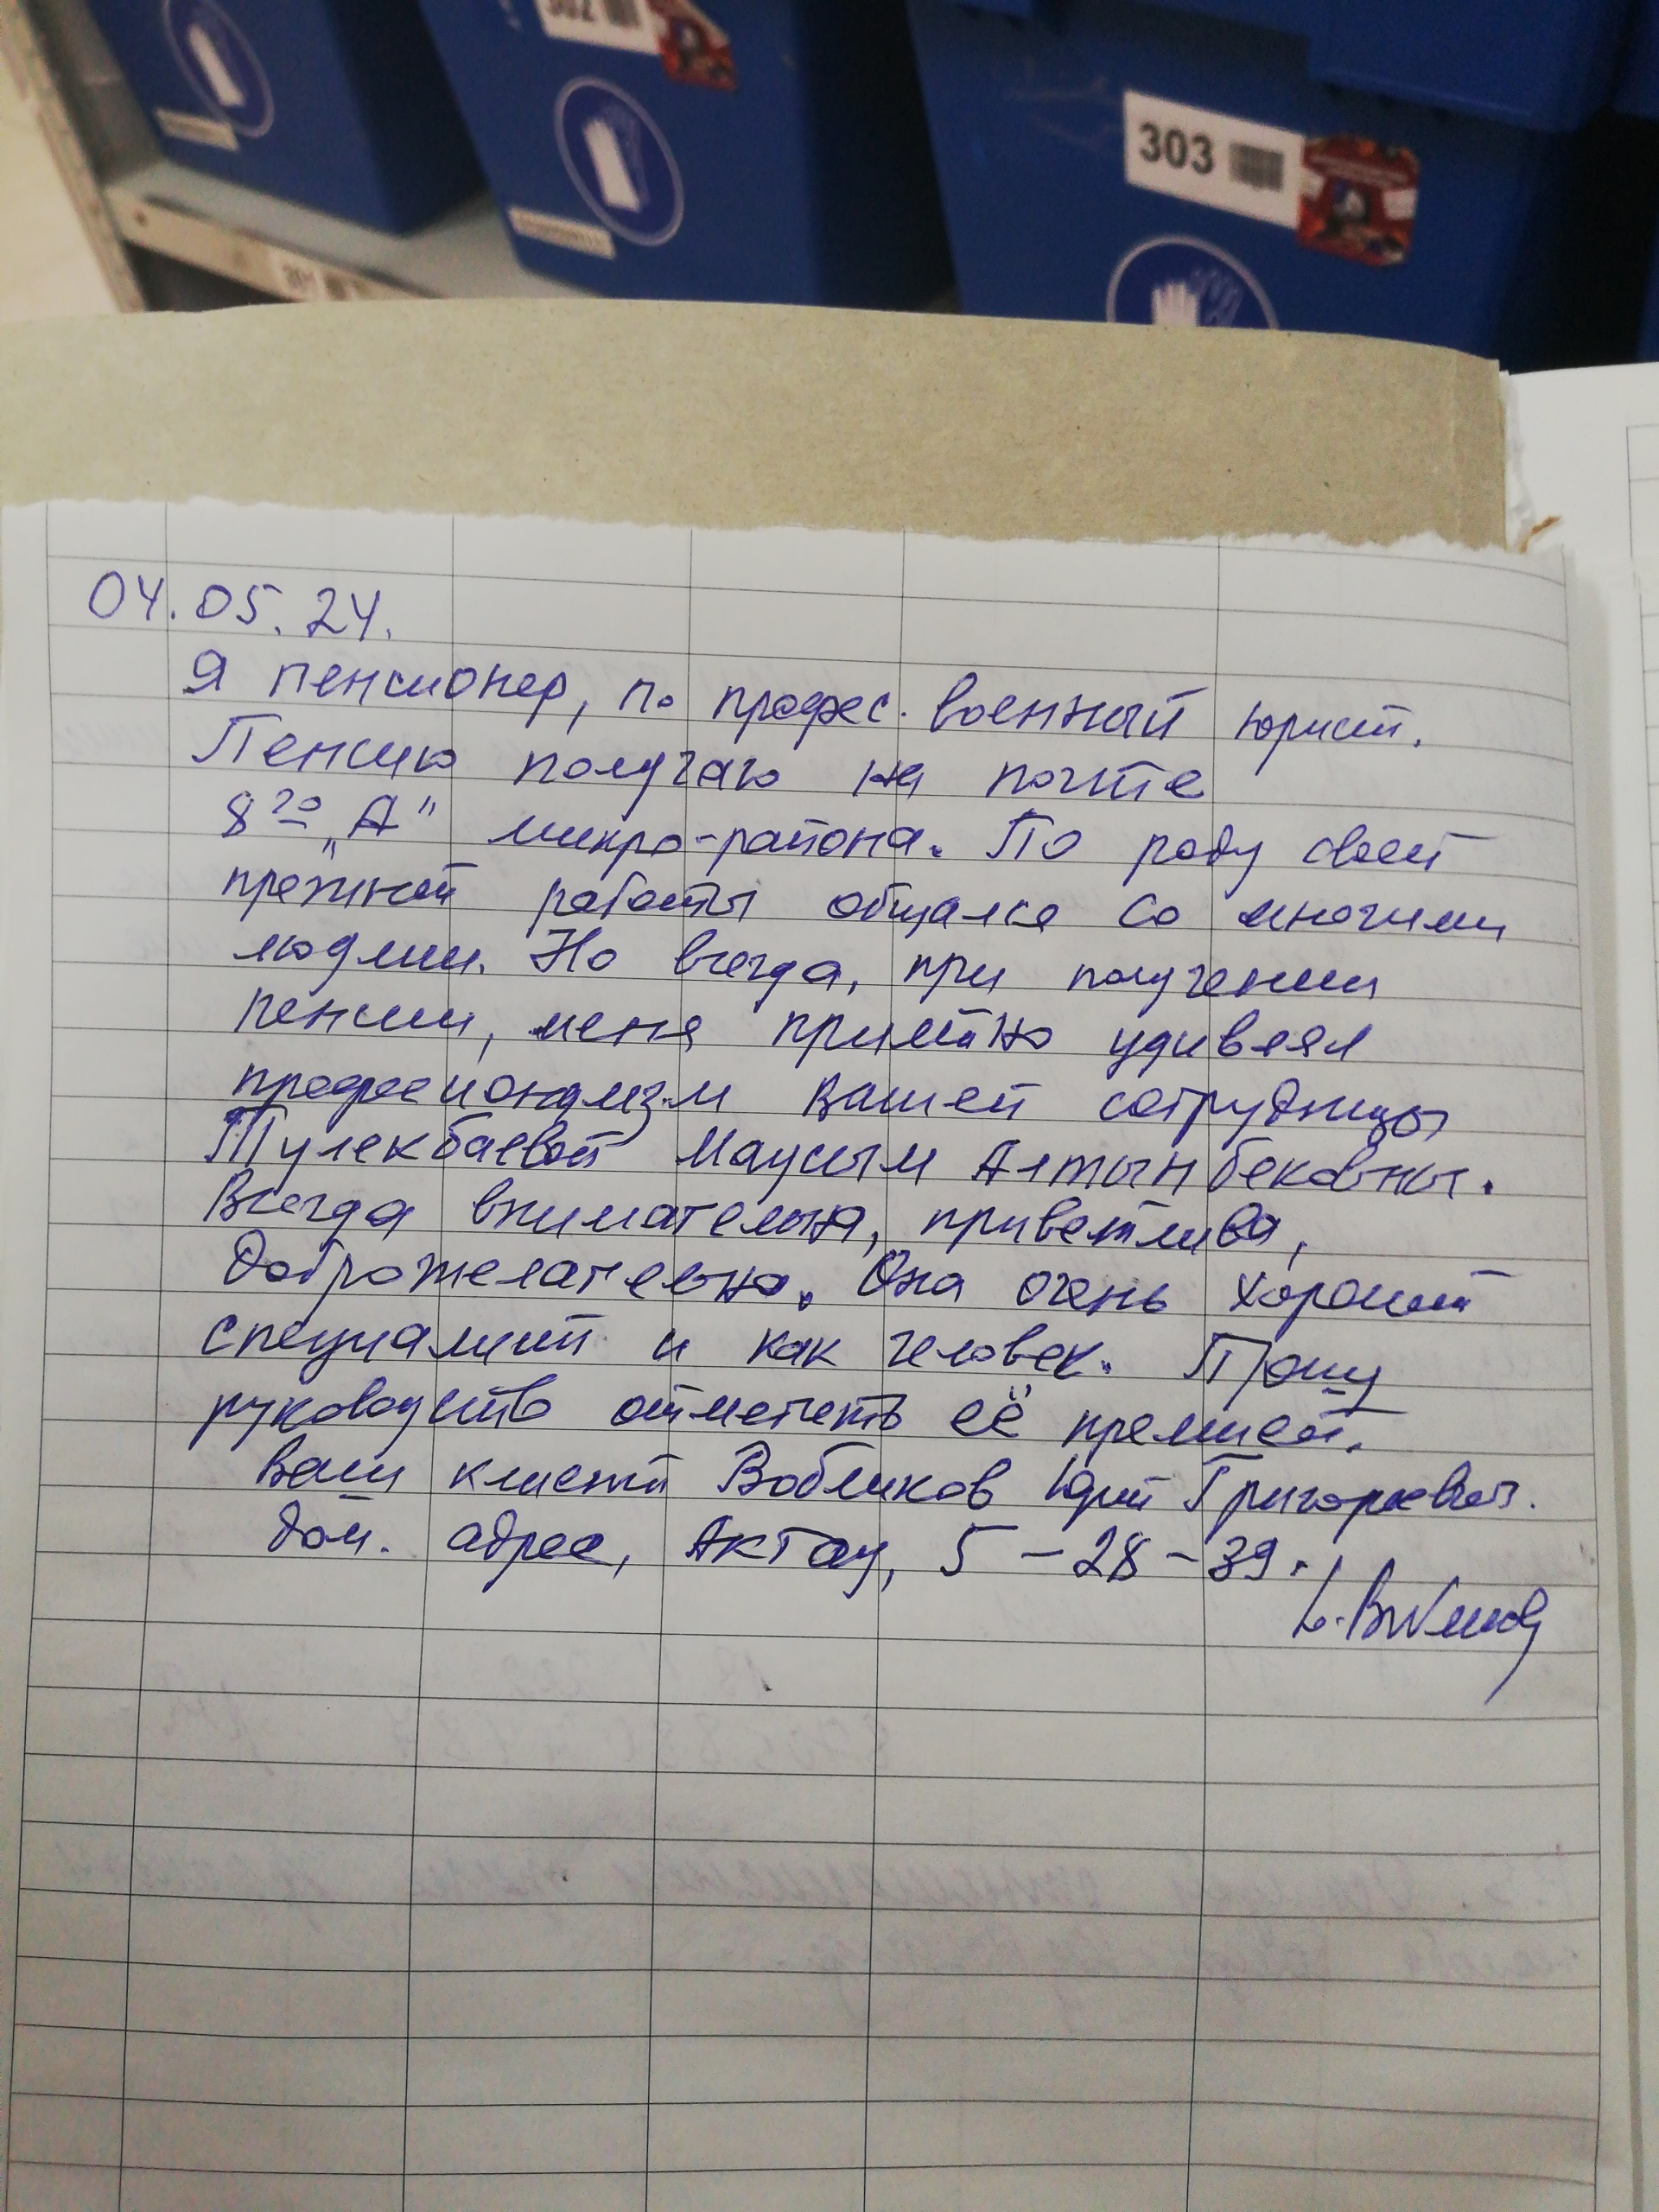 302
303
04.05.24.
Я пенсионер, по професс. военный юрист.
Пенсию получаю на почте
8го „А" микро-района. По роду своей
прежней работы общался со многими
людьми. Но всегда, при получении
пенсии, меня приятно удивлял
професионализм вашей сотрудницы
Тулекбаевой Маусым Алтынбековны.
Всегда внимательна, приветлива,
доброжелательна. Она очень хороший
специалист и как человек. Прошу
руководство отметить её премией.
Ваш клиент Вобликов Юрий Григорьевич.
дом. адрес, Актау, 5-28-39.